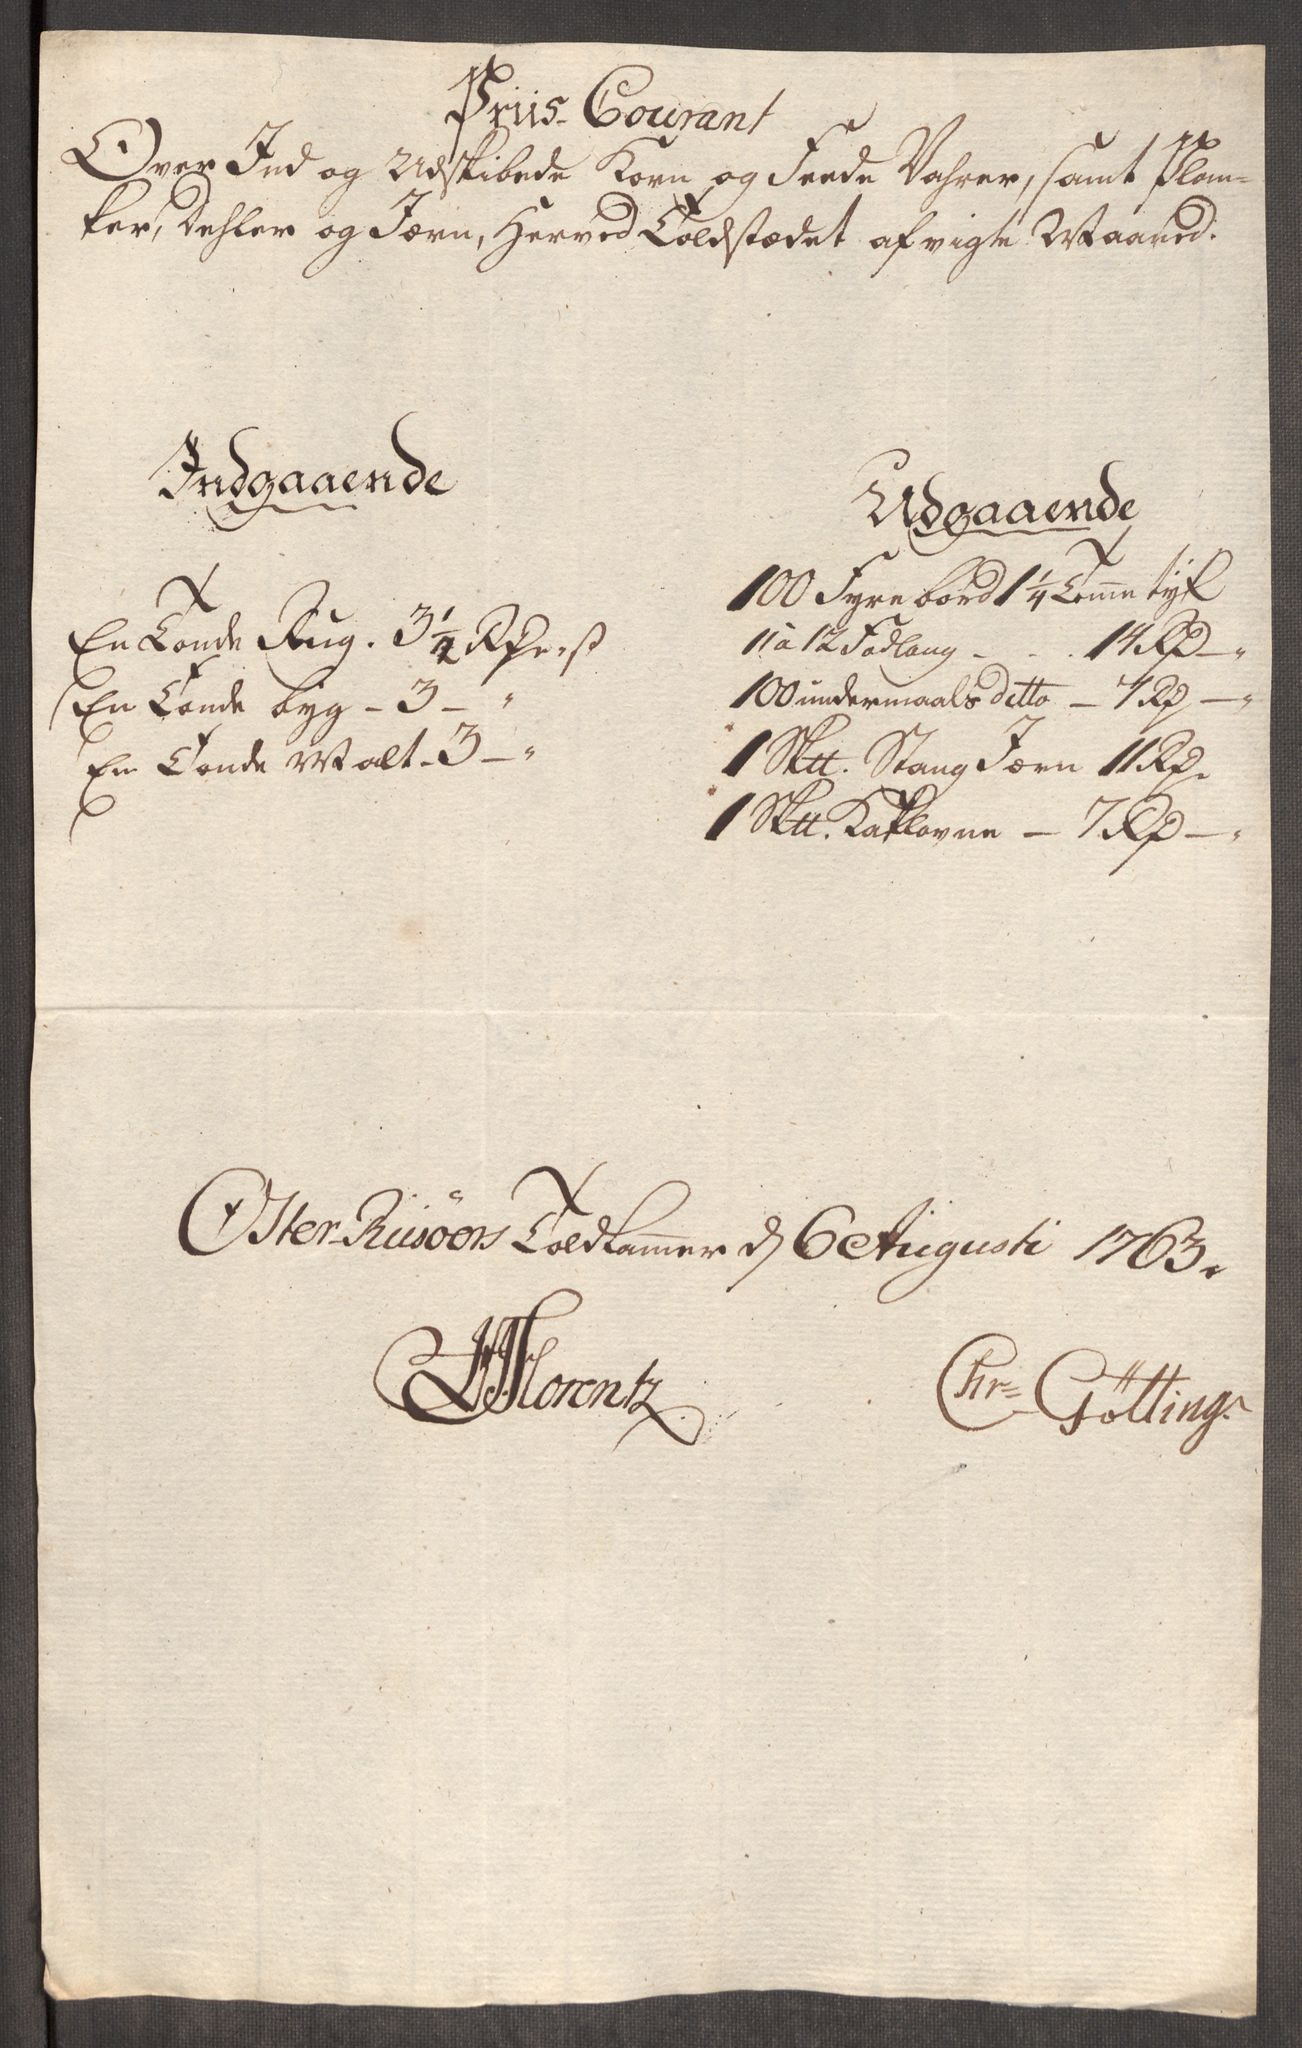 Priis Courant
Over Ind og Udskibede Korn og Feede Vahrer, samt Plan-
ker, Dehler og Jærn, Herved Toldstædet afvigte Maaned.
Indgaaende
En Tønde Rug. 3 1/2 Rd
En Tønde byg - 3 - "
En Tønde Malt - 3 - "
Udgaaende
100 Fyrre bord 1 1/4 Tomme tyk
11 a 12 Fod lang - - . 14 Rd - "
100 undermaals ditto - 7 Rd - "
1 Sktt. Stang Jærn 11 Rd.
1 Sktt. Kaklovne - 7 Rd - "
Øster-Riisöers Toldkammer d 6 Augusti 1763.
Florentz
Chr= Götting.